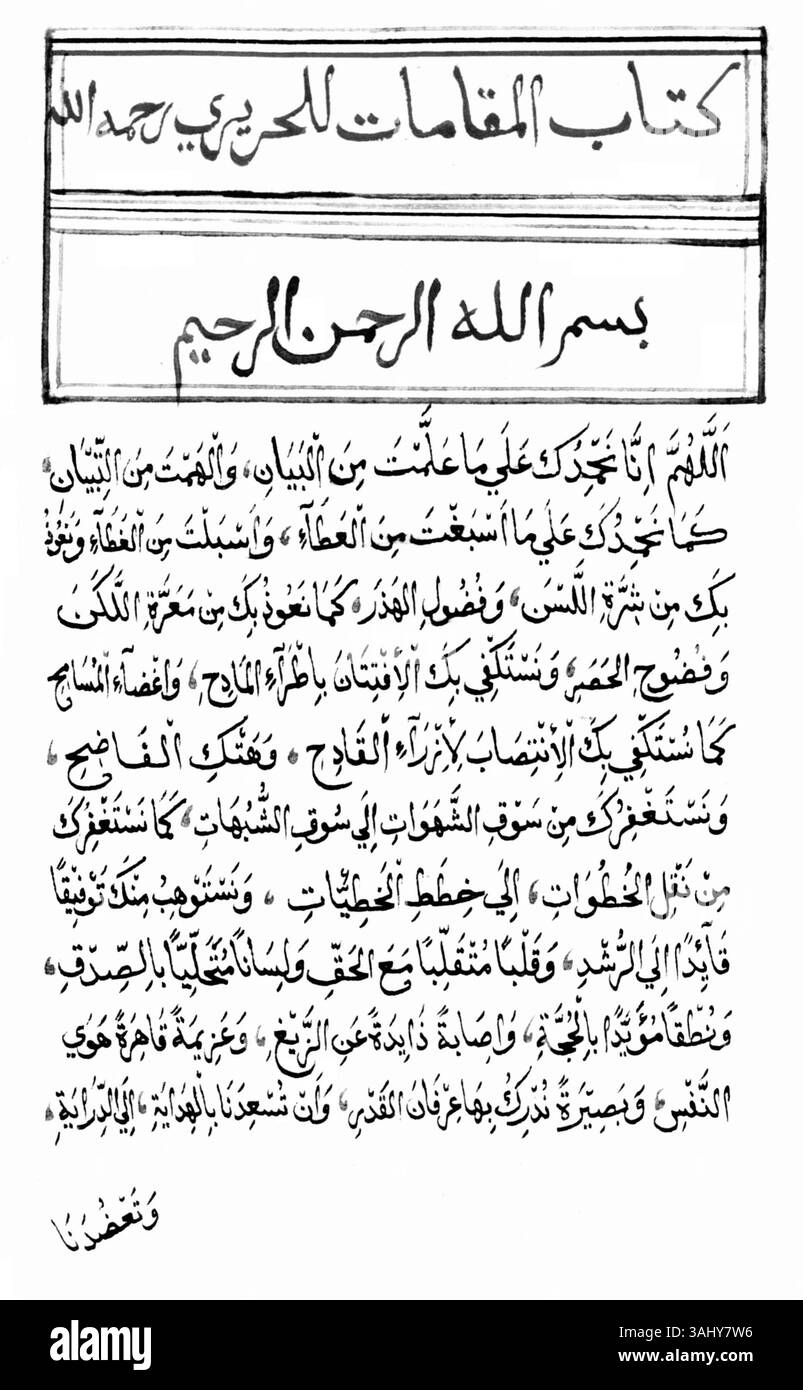 كتاب المقامات للحريري رحمه الله
بسم الله الرحمن الرحيم
اَللّٰهُمَّ اِنَّا نَحْمَدُكَ عَلَي مَا عَلَّمْتَ مِنَ الْبَيَانِ، وَاَلْهَمْتَ مِنَ التِّبْيَانِ،
كَمَا نَحْمَدُكَ عَلَي مَا اَسْبَغْتَ مِنَ الْعَطَآءِ، وَاَسْبَلْتَ مِنَ الْغَطَآءِ وَنَعُوذُ
بِكَ مِنْ شِرَّةِ اللَّسَنِ، وَفُضُولِ الهَذَرِ، كَمَا نَعُوذُ بِكَ مِنْ مَعَرَّةِ اللَّكَنِ
وَفُضُوحِ الحَصَرِ، وَنَسْتَكْفِي بِكَ الْاِفْتِتَانَ بِاِطْرَآءِ المَادِحِ، وَاِغْضَآءِ الْمُسَامِحِ
كَمَا نَسْتَكْفِي بِكَ الْاِنْتِصَابَ لِاِزْرَآءِ الْقَادِحِ، وَهَتْكِ الْفَاضِحِ،
وَنَسْتَغْفِرُكَ مِنْ سَوْقِ الشَّهَوَاتِ اِلَي سُوقِ الشُّبُهَاتِ، كَمَا نَسْتَغْفِرُكَ
مِنْ نَقْلِ الخُطُوَاتِ، اِلَي خِطَطِ الْخَطِيّٰاتِ، وَنَسْتَوْهِبُ مِنْكَ تَوْفِيْقًا
قَآئِدًا اِلَي الرُّشْدِ، وَقَلْبًا مُتَقَلِّبًا مَعَ الحَقِّ وَلِسَانًا مُتَحَلِّيًا بِالصِّدْقِ،
وَنُطْقًا مُؤَيَّدًا بِالْحُجَّةِ، وَاِصَابَةً ذَايِدَةً عَنِ الزَّيْغِ، وَعَزِيمَةً قَاهِرَةً هَوَي
النَّفْسِ، وَبَصِيْرَةً نُدْرِكُ بِهَا عِرْفَانَ القَدْرِ، وَاَنْ تُسْعِدَنَا بِالْهِدَايَةِ، اِلَي الدِّرَايَةِ،
وَتَعْضُدَنَا
alamy
Image ID: 3AHY7W6
www.alamy.com